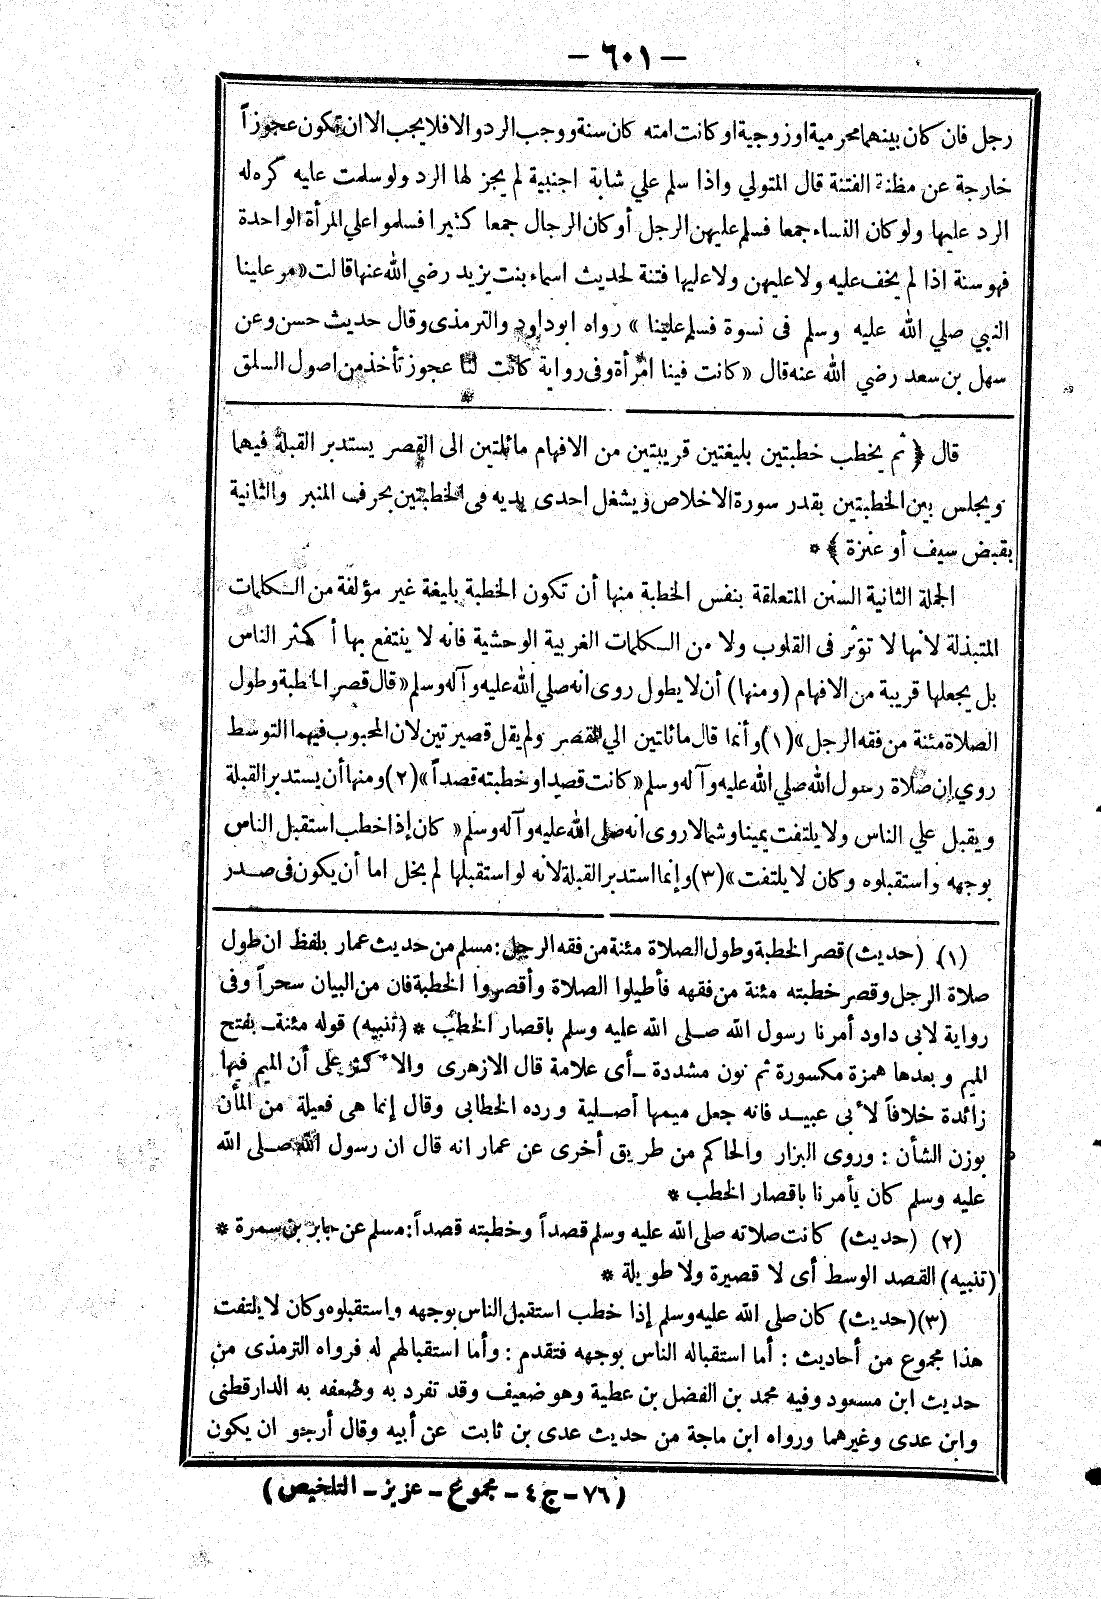 — ٦٠١ —
رجل فان كان بينهما محرمية او زوجية او كانت امته كان سنة ووجب الرد والا فلا يجب الا ان تكون عجوزاً
خارجة عن مظنة الفتنة قال المتولي واذا سلم علي شابة اجنبية لم يجز لها الرد ولو سلمت عليه كره له
الرد عليها ولو كان النساء جمعا فسلم عليهن الرجل أو كان الرجال جمعا كثيرا فسلموا علي المرأة الواحدة
فهو سنة اذا لم يخف عليه ولا عليهن ولا عليها فتنة لحديث اسماء بنت يزيد رضي الله عنها قالت «مر علينا
النبي صلي الله عليه وسلم فى نسوة فسلم علينا » رواه ابو داود والترمذى وقال حديث حسن وعن
سهل بن سعد رضي الله عنه قال «كانت فينا امرأة وفى رواية كانت لنا عجوز تأخذ من اصول السلق
قال ﴿ ثم يخطب خطبتين بليغتين قريبتين من الافهام مائلتين الى القصر يستدبر القبلة فيهما
ويجلس بين الخطبتين بقدر سورة الاخلاص ويشغل احدى يديه فى الخطبتين بحرف المنبر والثانية
بقبض سيف أو عنزة ﴾ *
الجملة الثانية السنن المتعلقة بنفس الخطبة منها أن تكون الخطبة بليغة غير مؤلفة من الكلمات
المتبذلة لانها لا تؤثر فى القلوب ولا من الكلمات الغريبة الوحشية فانه لا ينتفع بها أكثر الناس
بل يجعلها قريبة من الافهام (ومنها) أن لا يطول روى انه صلي الله عليه وآله وسلم «قال قصر الخطبة وطول
الصلاة مئنة من فقه الرجل» (١) وأنما قال مائلتين الي القصر ولم يقل قصيرتين لان المحبوب فيهما التوسط
روي إن صلاة رسول الله صلي الله عليه وآله وسلم «كانت قصدا وخطبته قصداً» (٢) ومنها أن يستدبر القبلة
ويقبل علي الناس ولا يلتفت يمينا وشمالا روى انه صلى الله عليه وآله وسلم «كان إذا خطب استقبل الناس
بوجهه واستقبلوه وكان لا يلتفت» (٣) وإنما استدبر القبلة لانه لو استقبلها لم يخل اما أن يكون فى صدر
(١) (حديث) قصر الخطبة وطول الصلاة مئنة من فقه الرجل: مسلم من حديث عمار بلفظ ان طول
صلاة الرجل وقصر خطبته مئنة من فقهه فأطيلوا الصلاة وأقصروا الخطبة فان من البيان سحراً وفى
رواية لابى داود أمرنا رسول الله صلى الله عليه وسلم باقصار الخطب * (تنبيه) قوله مئنة ـ بفتح
الميم وبعدها همزة مكسورة ثم نون مشددة ـ أى علامة قال الازهرى والاكثر على أن الميم فيها
زائدة خلافاً لأبى عبيد فانه جعل ميمها أصلية ورده الخطابى وقال إنما هى فعيلة من المأن
بوزن الشأن : وروى البزار والحاكم من طريق أخرى عن عمار انه قال ان رسول الله صلى الله
عليه وسلم كان يأمرنا باقصار الخطب *
(٢) (حديث) كانت صلاته صلى الله عليه وسلم قصداً وخطبته قصداً: مسلم عن جابر بن سمرة *
(تنبيه) القصد الوسط أى لا قصيرة ولا طويلة *
(٣) (حديث) كان صلى الله عليه وسلم إذا خطب استقبل الناس بوجهه واستقبلوه وكان لا يلتفت
هذا مجموع من أحاديث : أما استقباله الناس بوجهه فتقدم : وأما استقبالهم له فرواه الترمذى من
حديث ابن مسعود وفيه محمد بن الفضل بن عطية وهو ضعيف وقد تفرد به وضعفه به الدارقطنى
وابن عدى وغيرهما ورواه ابن ماجة من حديث عدى بن ثابت عن أبيه وقال أرجو ان يكون
(٧٦ - ج ٤ - مجموع - عزيز - التلخيص)